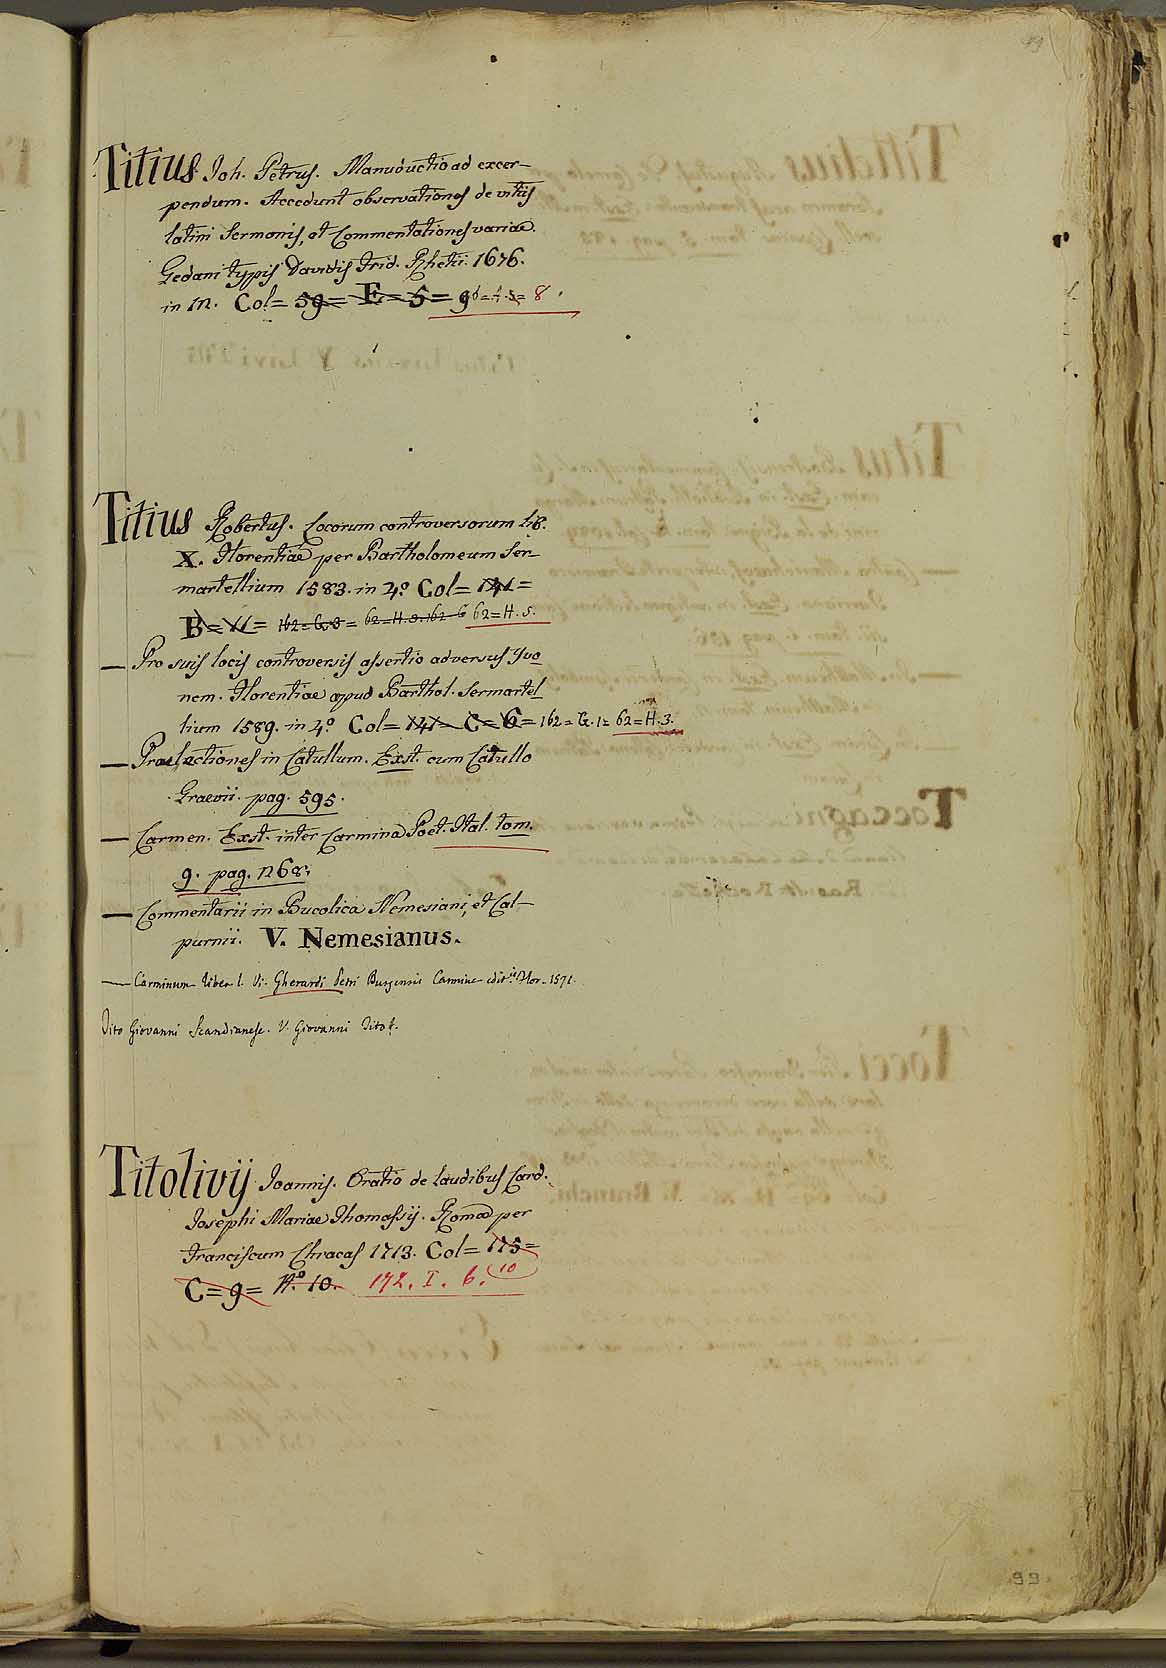 99
Titius Joh. Petrus. Manuductio ad excer-
pendum. Accedunt observationes de vitiis
latini Sermonis, et Commentationes variae.
Gedani typis Davidis Frid. Rhetii. 1676.
in 12. Col= 59= E= 5= 8.
Titius Robertus. Locorum controversorum lib.
X. Florentiae per Bartholomeum Ser-
martellium 1583. in 4º Col= 141=
B= 11= 162= G. 8= 62=H. 9. 162 G 62=H. 5.
— Pro suis locis controversis assertio adversus Yvo
nem. Florentiae apud Barthol. Sermartel
lium 1589. in 4º Col= 141= C= 6= 162= G. 1= 62=H. 3.
— Praelectiones in Catullum. Exst. cum Catullo
Graevii. pag. 595.
— Carmen. Exst. inter Carmina Poet. Ital. tom.
9. pag. 1268.
— Commentarii in Bucolica Nemesiani, et Cal-
purnii. V. Nemesianus.
— Carminum liber I. V. Gherardi Petri Burgensis Carmina edit. Flor. 1571.
Tito Giovanni Scandianese. V. Giovanni Tito.
Titolivij Joannis. Oratio de laudibus Card.
Josephi Mariae Thomassij. Romae per
Franciscum Chracas 1713. Col= 175=
C= 9= Nº 10. 172. I. 6. 10
99